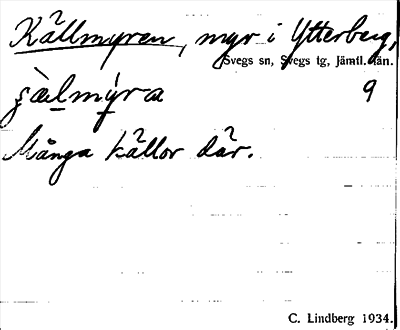 Källmyren, myr i Ytterberg,
Svegs sn, Svegs tg, Jämtl. län.
9
Många källor där.
C. Lindberg 1934.